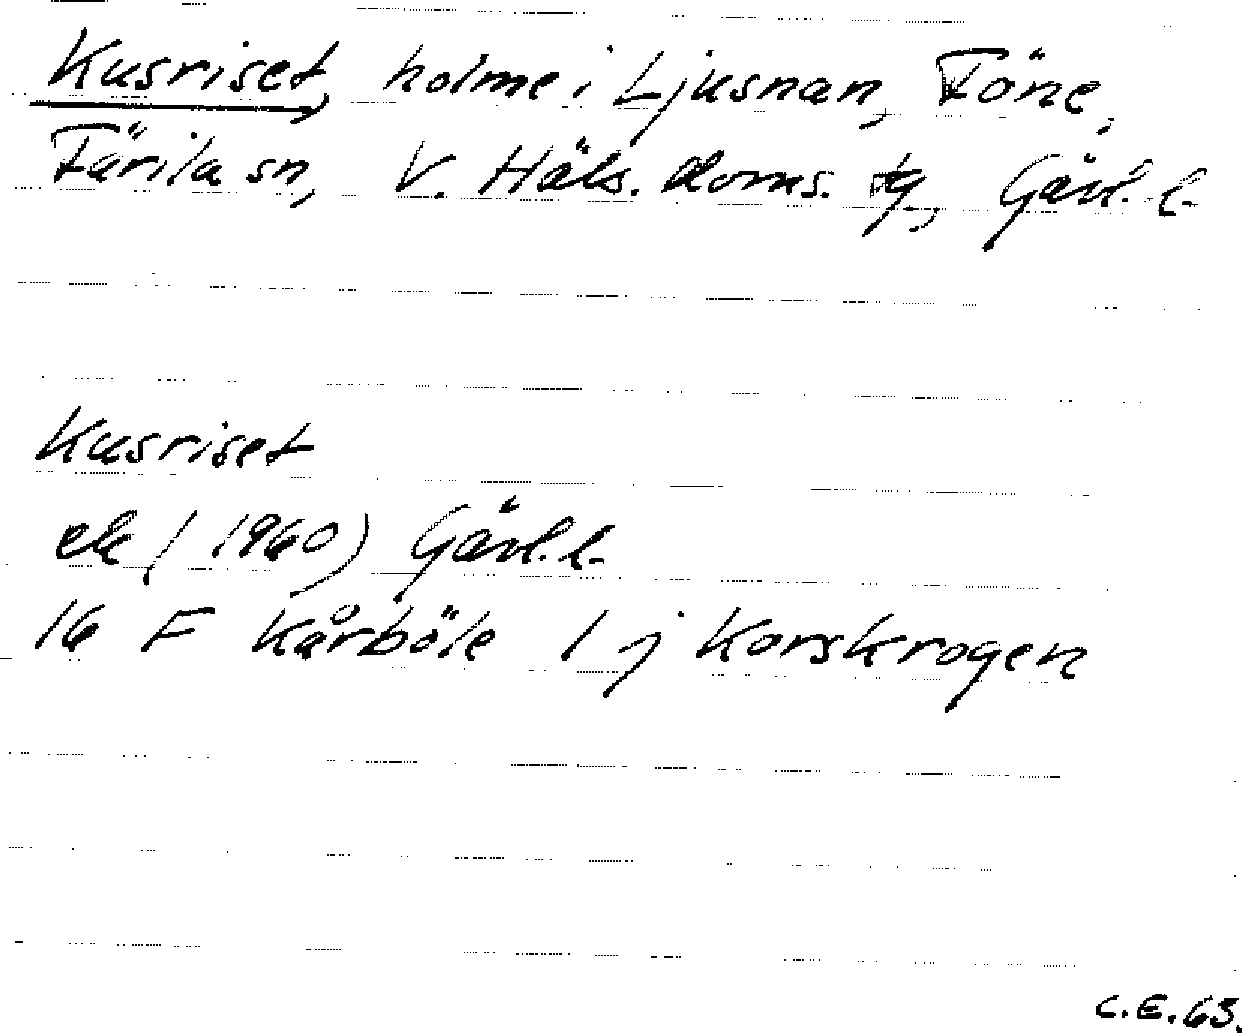 Kusriset, holme i Ljusnan, Föne,
Färila sn, V. Häls. doms. tg, Gävl. l.
Kusriset
ek (1960) Gävl. l.
16 F Kårböle 1 j Korskrogen
C.E. 63.